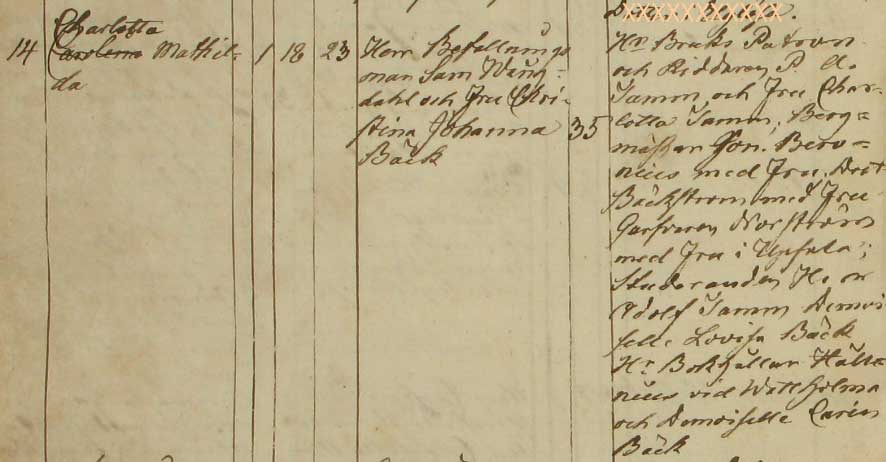 Charlotta
14 Carolina Mathil-
da
1 18 23
Herr Befallnings
man Sam Wång-
dahl och Fru Chri-
stina Johanna 35
Bäck
Hr Bruks Patron
och Riddaren P. A.
Tamm och Fru Char-
lotta Tamm; Berg-
mästar Jon. Bero-
nius med Fru,
Bäckström med Fru
Norström
med Fru i Upsala;
Studeranden
Adolf Tamm Demoi
selle Lovisa Bäck
Hr Bokhållar
nius vid Wattholma
och Demoiselle Carin
Bäck